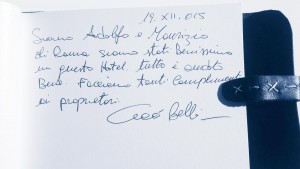 19.XII.015
Siamo Adolfo e Maurizio
di Roma siamo stati Benissimo
in questo Hotel. tutto è andato
Bene. Facciamo tanti complimenti
ai proprietari.
Ciao Belli